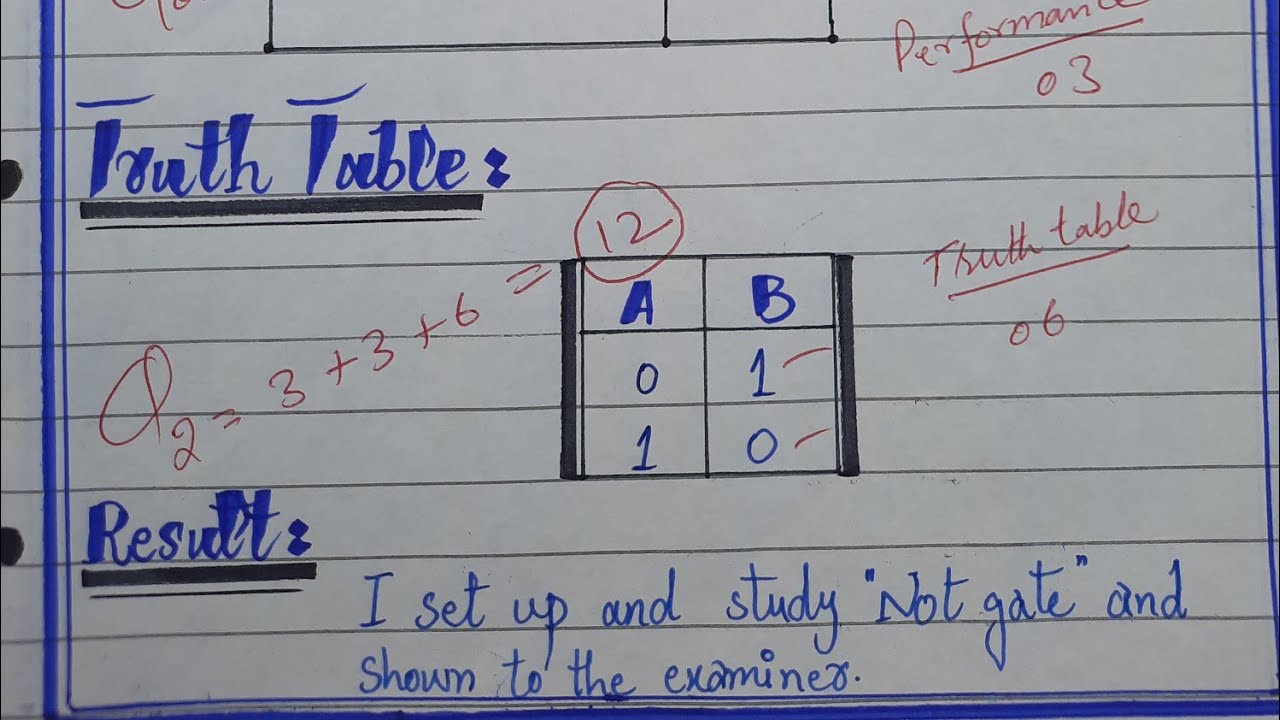 Performance
03
Truth Table:
12
Truth table
06
Q2 = 3 + 3 + 6 =
A B
0 1
1 0
Result:
I set up and study "Not gate" and
shown to the examiner.